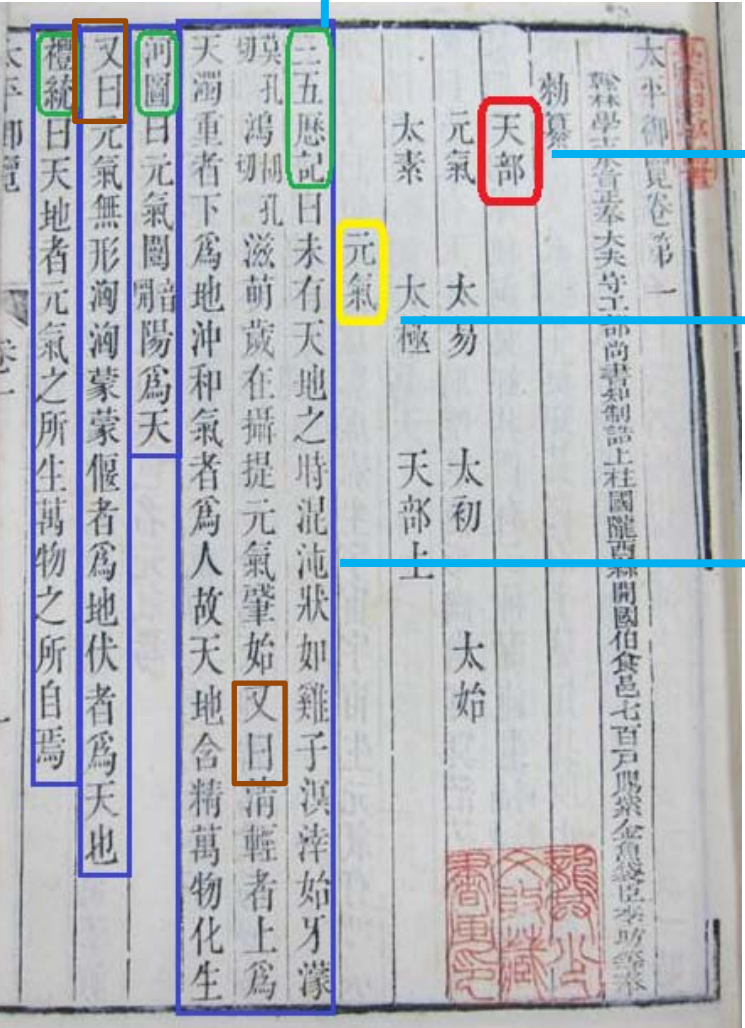 太平御覽卷第一
翰林學士承旨正奉大夫守工部尚書知制誥上柱國隴西縣開國伯食邑七百戶賜紫金魚袋臣李昉等奉
勅纂
天部
元氣 太易 太初 太始
太素 太極 天部上
元氣
三五歷記曰未有天地之時混沌狀如雞子溟涬始牙濛
莫孔切鴻胡孔切滋萌歲在攝提元氣肇始又曰清輕者上爲
天濁重者下爲地沖和氣者爲人故天地含精萬物化生
河圖曰元氣闓音開陽爲天
又曰元氣無形洶洶蒙蒙偃者爲地伏者爲天也
禮統曰天地者元氣之所生萬物之所自焉
太平御覽 卷一 一